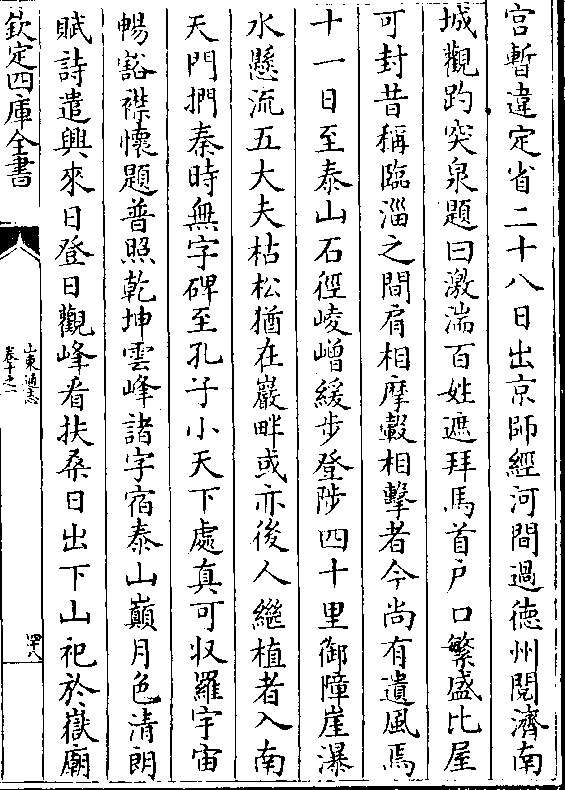 宫暫違定省二十八日出京師經河間過徳州閲濟南
城觀趵突泉題曰激湍百姓遮拜馬首户口繁盛比屋
可封昔稱臨淄之間肩相摩轂相擊者今尚有遺風焉
十一日至泰山石徑崚嶒緩步登陟四十里御障崖瀑
水懸流五大夫枯松猶在巖畔或亦後人繼植者入南
天門捫秦時無字碑至孔子小天下處真可収羅宇宙
暢豁襟懷題普照乾坤雲峰諸字宿泰山巔月色清朗
賦詩遣興來日登日觀峰看扶桑日出下山祀於嶽廟
欽定四庫全書
山東通志
卷十之一
四十八